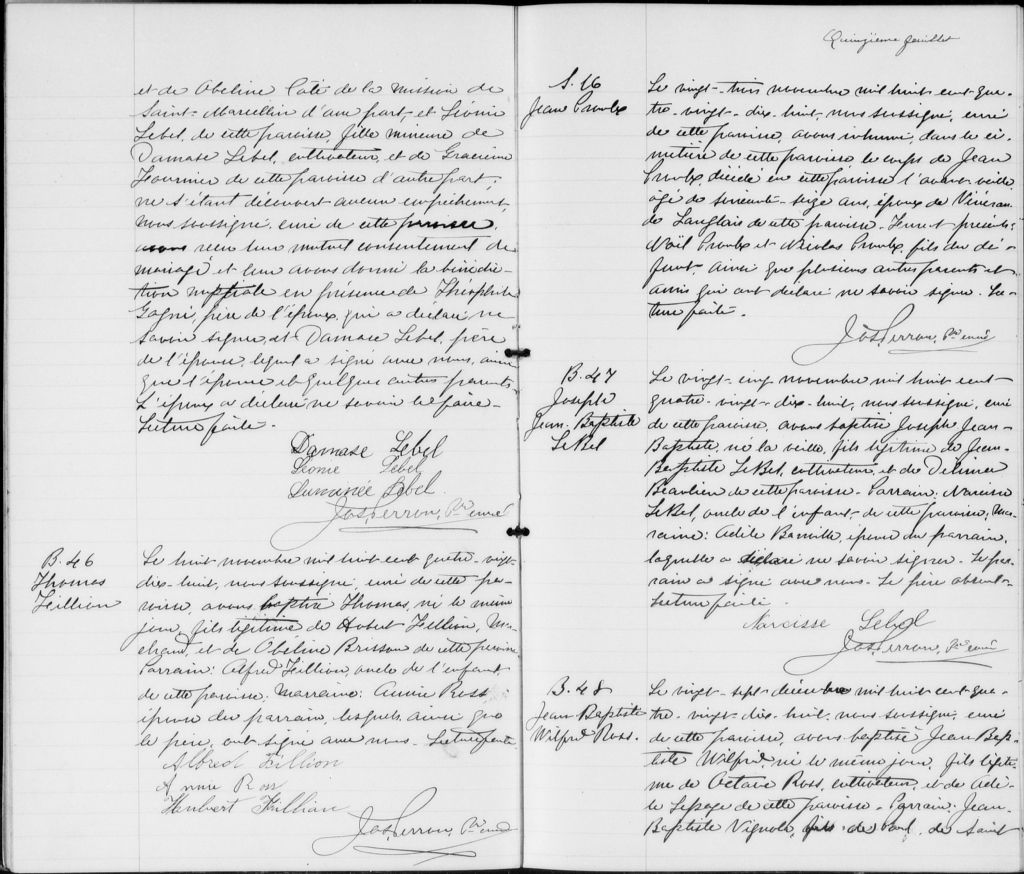 et de Obeline Côté de la mission de
Saint-Marcellin d'une part, et Léonie
Lebel, de cette paroisse, fille mineure de
Damase Lebel, cultivateur, et de Gracieuse
Fournier de cette paroisse d'autre part;
ne s'étant découvert aucun empêchement,
nous, soussigné, curé de cette paroisse,
avons reçu leur mutuel consentement de
mariage et leur avons donné la bénédic-
tion nuptiale en présence de Théophile
Gagné, père de l'époux, qui a déclaré ne
savoir signer, et Damase Lebel, père
de l'épouse, lequel a signé avec nous, ainsi
que l'épouse et quelques autres parents
L'époux a déclaré ne savoir le faire-
Lecture faite.
Damase Lebel
Léonie Lebel
Lebel
Jos. Perron, Ptre curé
B. 46
Thomas
Fillion
Le huit novembre mil huit cent quatre-vingt-
dix-huit, nous soussigné, curé de cette pa-
roisse, avons baptisé Thomas, né le même
jour, fils légitime de Hubert Fillion, Mar-
chand, et de Obéline Brisson de cette paroisse
Parrain: Alfred Fillion, oncle de l'enfant
de cette paroisse. Marraine: Annie Ross
épouse du parrain, lesquels, ainsi que
le père, ont signé avec nous. Lecture faite
Alfred Fillion
Annie Ross
Hubert Fillion
Jos. Perron, Ptre curé
Quinzième feuillet
S. 16
Jean Proulx
Le vingt-trois novembre mil huit cent qua-
tre-vingt-dix-huit, nous soussigné, curé
de cette paroisse, avons inhumé, dans le ci-
metière de cette paroisse le corps de Jean
Proulx, décédé en cette paroisse l'avant-veille
âgé de soixante-seize ans, époux de
de Langlais de cette paroisse. Furent présents:
Noël Proulx et Nicolas Proulx, fils du dé-
funt, ainsi que plusieurs autres parents et
amis qui ont déclaré ne savoir signer. Lec-
ture faite.
Jos. Perron, Ptre curé
B. 47
Joseph
Jean-Baptiste
LeBel
Le vingt-cinq novembre mil huit cent
quatre-vingt-dix-huit, nous soussigné, curé
de cette paroisse, avons baptisé Joseph Jean-
Baptiste, né la veille, fils légitime de Jean-
Baptiste LeBel, cultivateur, et de Delima
Beaulieu de cette paroisse. Parrain: Narcisse
LeBel, oncle de l'enfant, de cette paroisse; Mar-
raine: Adèle Banville, épouse du parrain,
laquelle a déclaré ne savoir signer. Le par-
rain a signé avec nous. Le père absent-
Lecture faite.
Narcisse Lebel
Jos. Perron, Ptre curé
B. 48
Jean-Baptiste
Wilfred Ross.
Le vingt-sept décembre mil huit cent qua-
tre-vingt-dix-huit, nous soussigné, curé
de cette paroisse, avons baptisé Jean Bap-
tiste Wilfred, né le même jour, fils légiti-
me de Octave Ross, cultivateur, et de Adè-
le Lepage de cette paroisse. Parrain: Jean-
Baptiste Vignola, fils de Paul, de Saint